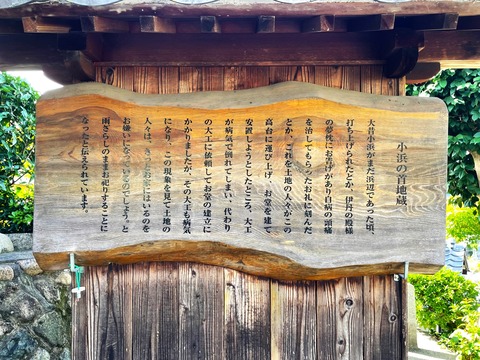 小浜の首地蔵
大昔小浜がまだ浜辺であった頃、
打ち上げられたとか、伊丹の殿様
の夢枕にお告げがあり自病の頭痛
を治してもらったお礼に刻んだ
とか。これを土地の人々がこの
高台に運び上げ、お堂を建て
安置しようとしたところ、大工
が病気で倒れてしまい、代わり
の大工に依頼してお堂の建立に
かかりましたが、その大工も病気
になり、この現象を見て土地の
人々は、きっとお堂にはいるのを
お嫌いになっているのでしょう。と
雨ざらしのままお祀りすることに
なったと伝えられています。